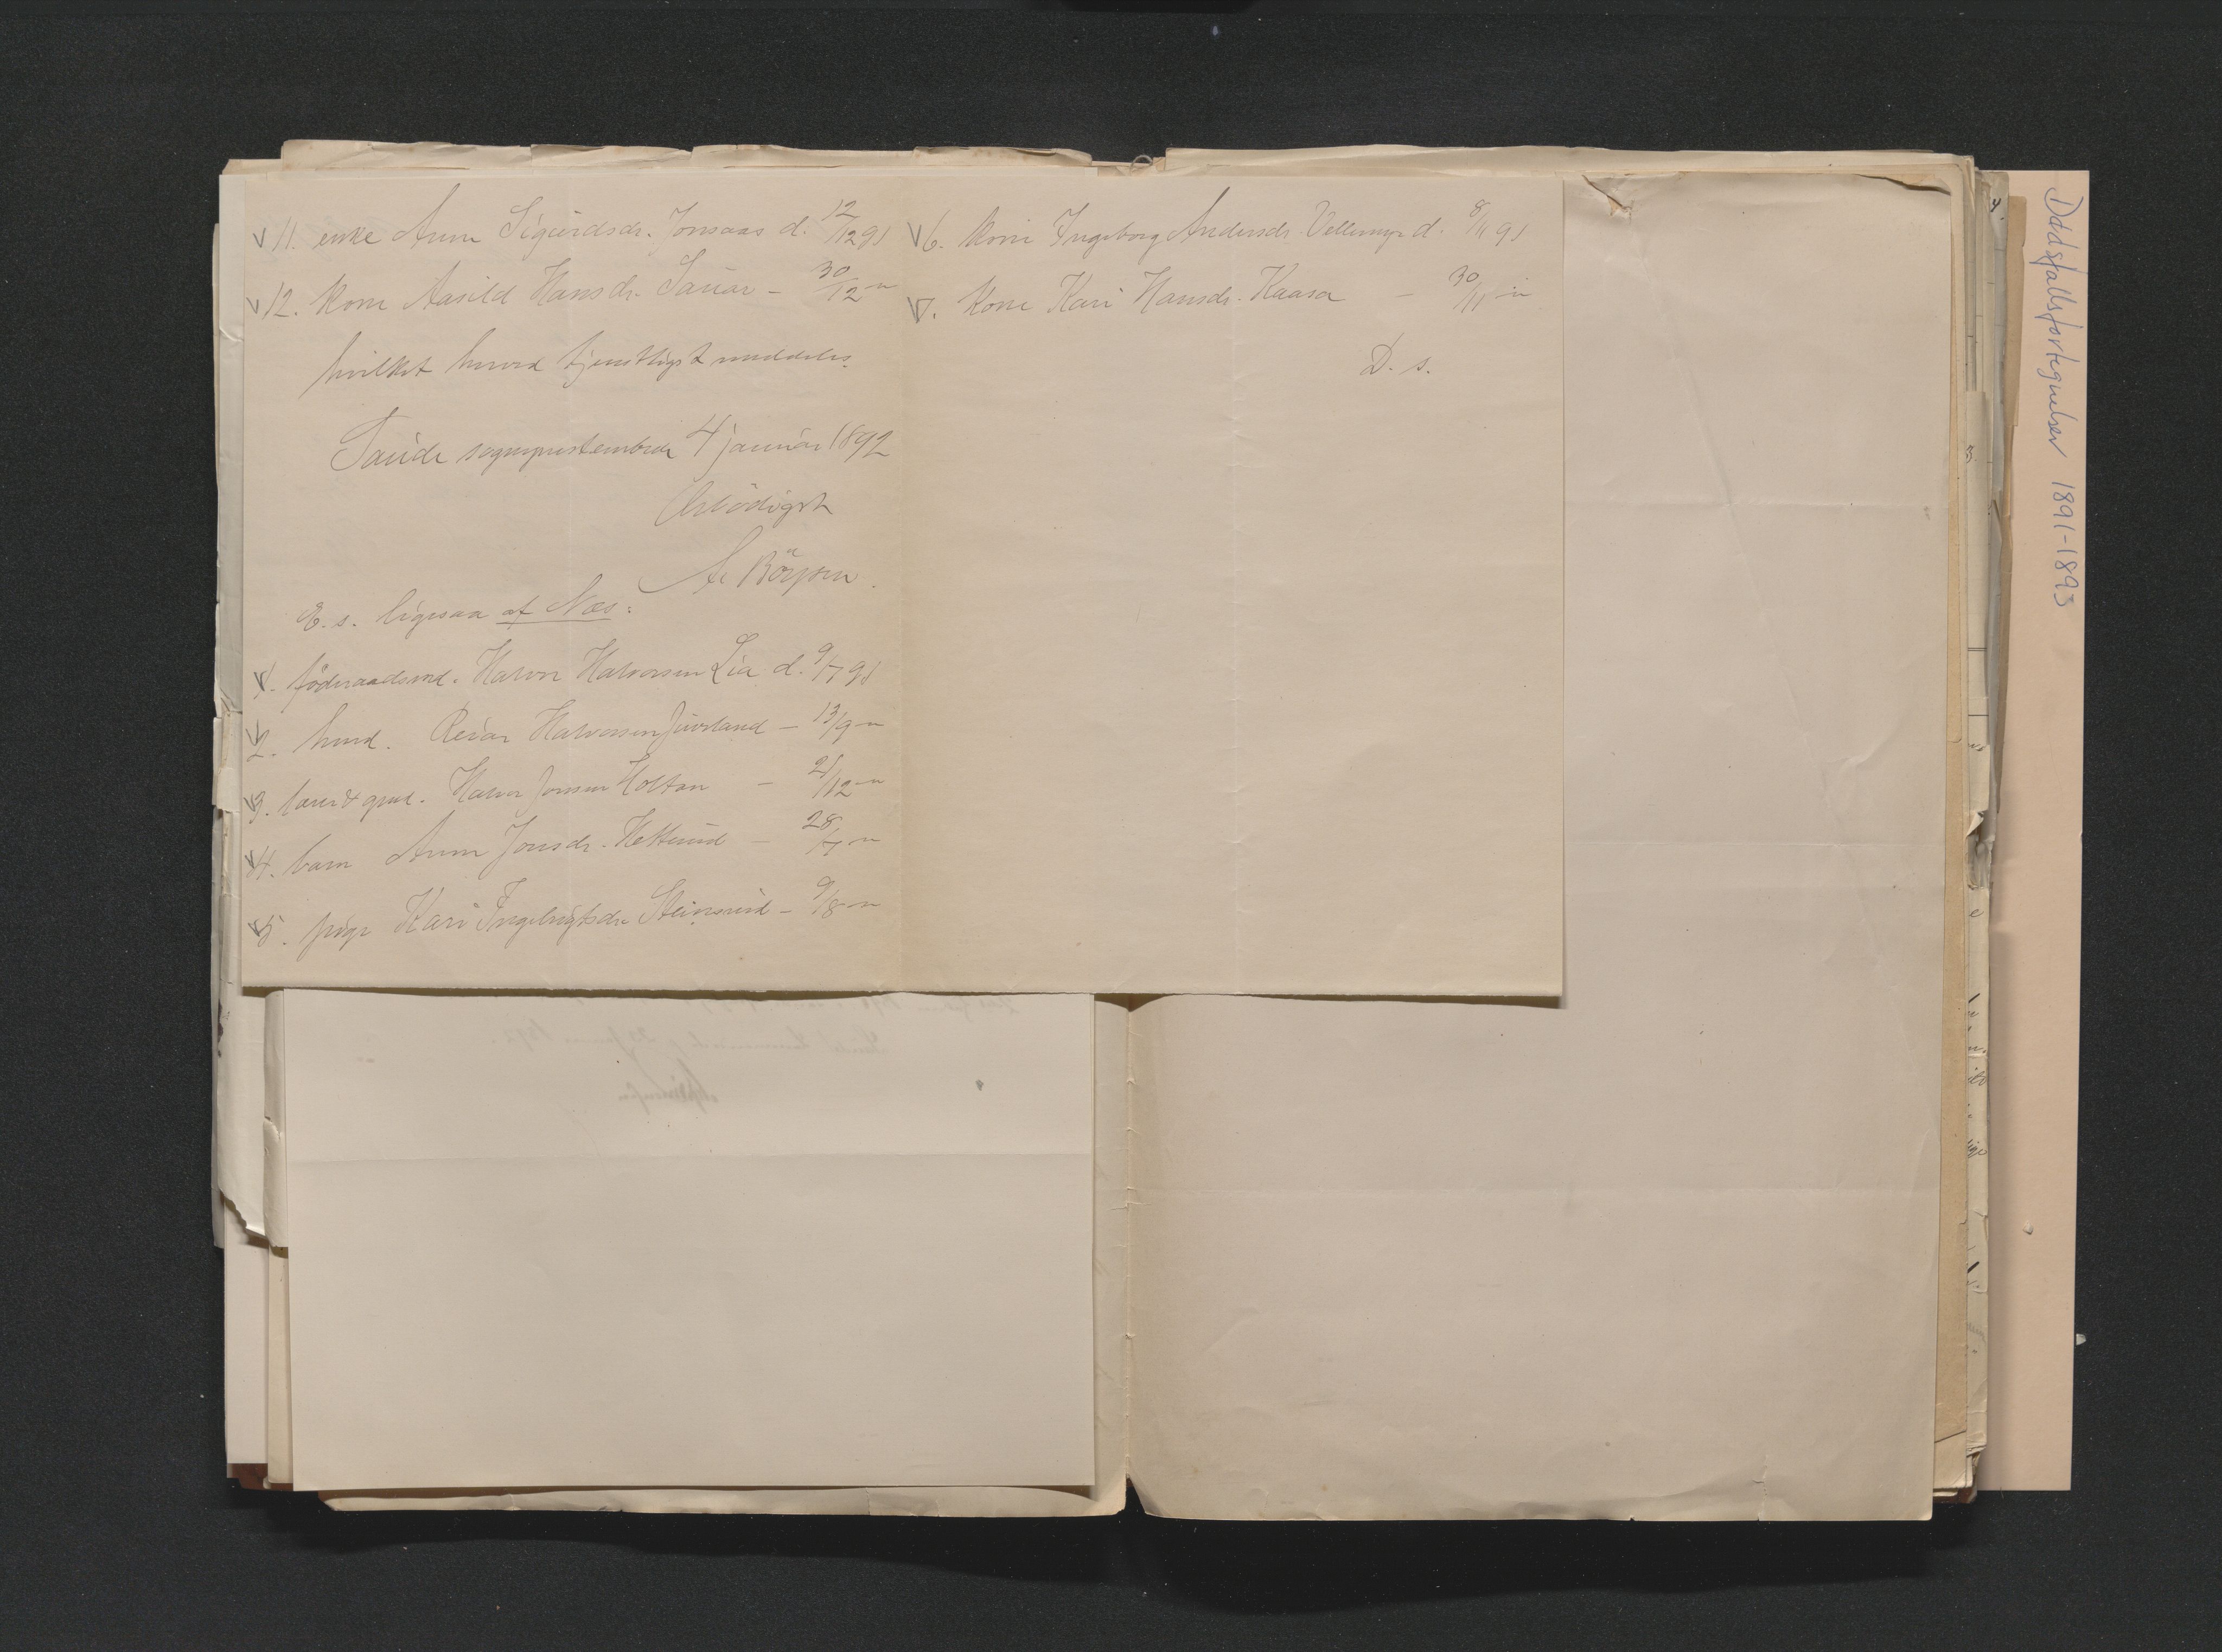 11. enke Anne Sigurdsdr. Jonsaas d. 12/12 91
12. kone Aasild Hansdr. Sauar - 30/12 "
hvilket herved tjenstligst meddeles.
Saude sogneprestembede 4 januar 1892
Ærbödigst
A. Börresen.
E. s. ligesaa af Næs:
1. föderaadsmd. Halvor Halvorsen Lia d. 9/7 91
2. husmd. Reiar Halvorsen Juvland - 13/9 "
3. lærer & grd. Halvor Jonsen Holtan - 21/12 "
4. barn Anne Jonsdr. Hettuud - 28/7 "
5. pige Kari Ingebrigtsdr. Steinsrud - 9/8 "
6. kone Ingeborg Andersdr. Vellemyr d. 8/11 91
7. kone Kari Hansdr. Kaasa - 30/11 "
D. s.
Dødsfallsfortegnelser 1891-1893